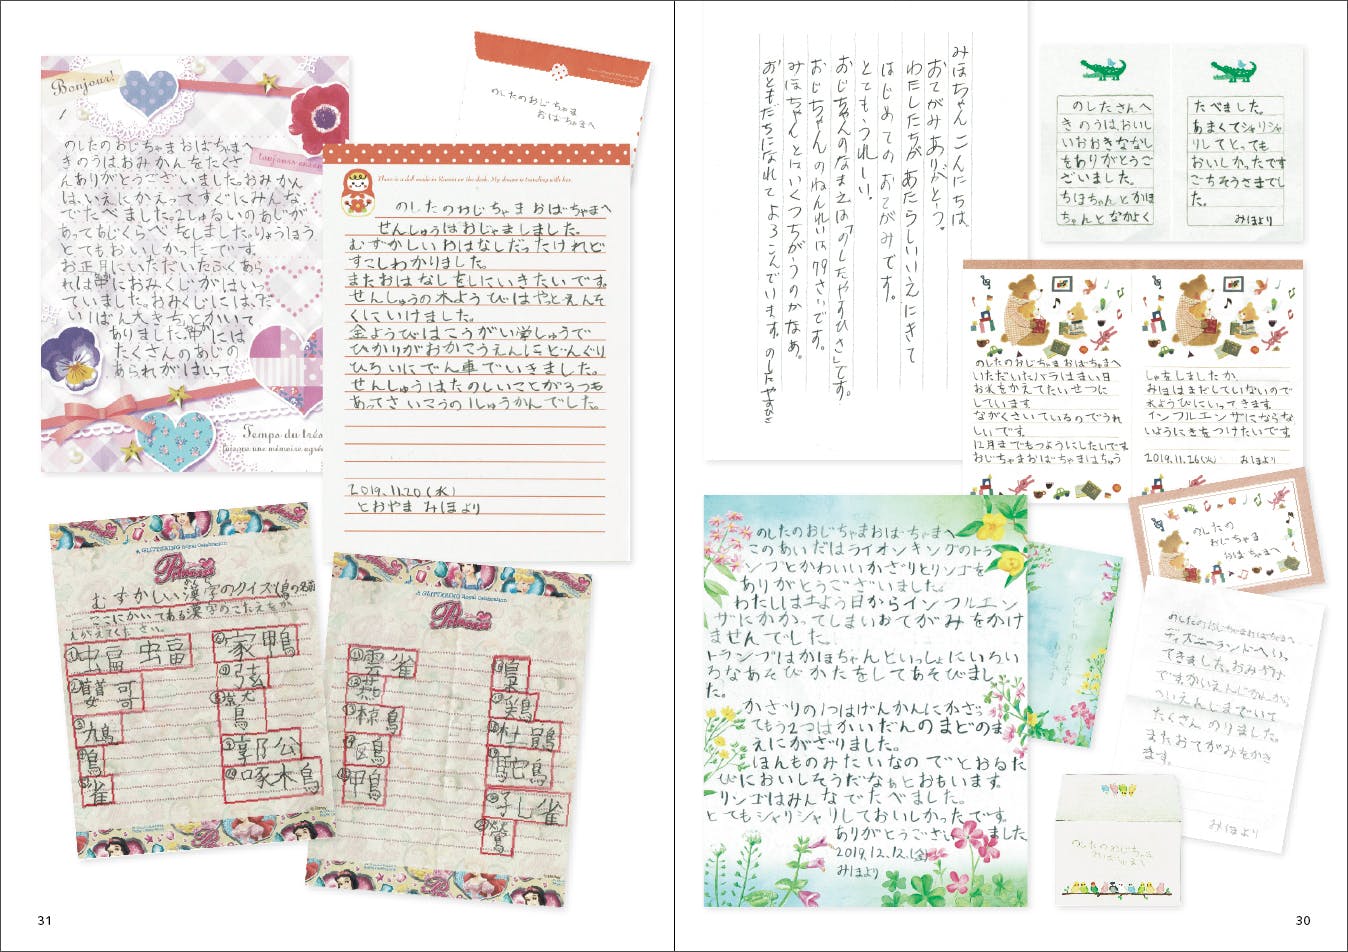 Bonjour!
のしたのおじちゃまおばちゃまへ
きのうはおみかんをたくさ
んありがとうございました。おみかん
は、いえにかえってすぐにみんな
でたべました。2しゅるいのあじが
あってあじくらべをしました。りょうほう
とてもおいしかったです。
お正月にいただいたふくあら
れは中におみくじがはいっ
ていました。おみくじには、だ
いばん大きちとかいて
ありました。中には
たくさんのあじの
あられがはいって
toujours
Temps du
une mémoire
のしたのおじちゃま
おばちゃまへ
There is a doll made in Russia on the desk. My dream is traveling with her.
のしたのおじちゃま おばちゃまへ
せんしゅうはおじゃましました。
むずかしいおはなしだったけれど
すこしわかりました。
またおはなしをしにいきたいです。
せんしゅうの木ようびはやとえんそ
くにいけました。
金ようびはこうがい学しゅうで
ひかりがおかこうえんにどんぐり
ひろいにでん車でいきました。
せんしゅうはたのしいことが3つも
あってさいこうの1しゅうかんでした。
2019.11.20(水)
とおやま みほより
A GLITTERING Royal Celebration
Princess
むずかしい漢字のクイズ(鳥の名前)
ここにかいてある漢字のこたえをか
えがえてください
家鴨
郭公
啄木鳥
雀
A GLITTERING Royal Celebration
Princess
雲雀
孔雀
31
みほちゃん こんにちは。
おてがみありがとう。
わたしたちが あたらしいいえにきて
はじめてのおてがみです。
とてもうれしい。
おじちゃんのなまえは「のしたやすひさ」です。
おじちゃんのねんれいは79さいです。
みほちゃんとはいくつちがうのかなあ。
おともだちになれてよろこんでいます。 のしたやすひさ
のしたさんへ
きのうは、おいし
いおおきななし
をありがとうご
ざいました。
ちほちゃんとかほ
ちゃんとなかよく
たべました。
あまくてシャリシャ
リしてとっても
おいしかったです
ごちそうさまでし
た。
みほより
のしたのおじちゃま おばちゃまへ
いただいたバラはまい日
お水をかえてたいせつに
しています。
ながくさいているのでうれ
しいです。
12月までもつようにしたいです。
おじちゃまおばちゃまはちゅう
しゃをしましたか。
みほはまだしていないので
水ようびにいってきます。
インフルエンザにならな
いようにきをつけたいです。
2019.11.26(火) みほより
のしたの
おじちゃま
おばちゃまへ
のしたのおじちゃまおばちゃまへ
このあいだはライオンキングのトラ
ンプとかわいいかざりとリンゴを
ありがとうございました。
わたしは土よう日からインフルエン
ザにかかってしまいおてがみをかけ
ませんでした。
トランプはかほちゃんといっしょにいろい
ろなあそびかたをしてあそびまし
た。
かざりの1つはげんかんにかざっ
てもう2つはかいだんのまどのま
えにかざりました。
ほんものみたいなのでとおるた
びにおいしそうだなぁとおもいます。
リンゴはみんなでたべました。
とてもシャリシャリしておいしかったです。
ありがとうございました
2019.12.12.(金)
みほより
のしたのおじちゃまおばちゃまへ
ディズニーランドへいっ
てきました。おみやげ
たくさんのりました。
またおてがみをかき
ます。
みほより
のしたのおじちゃま
おばちゃまへ
30